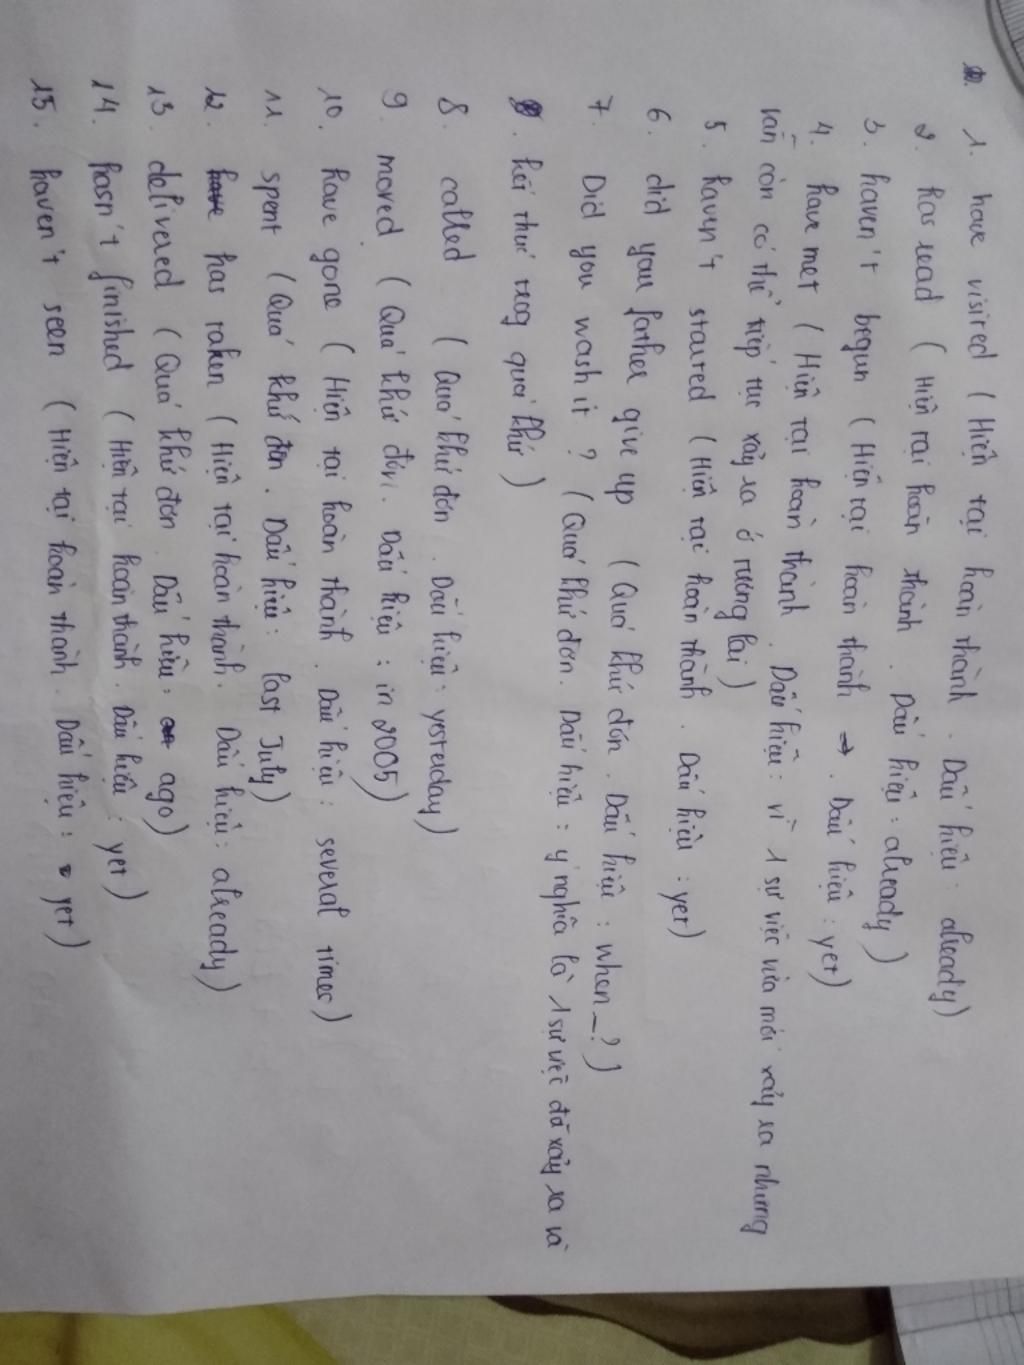 1. have visited ( Hiện tại hoàn thành . Dấu hiệu : already)
2. has read ( Hiện tại hoàn thành . Dấu hiệu : already )
3. haven't begun ( Hiện tại hoàn thành → . Dấu hiệu : yet)
4. have met ( Hiện tại hoàn thành . Dấu hiệu : vì 1 sự việc vừa mới xảy ra nhưng
vẫn còn có thể tiếp tục xảy ra ở tương lai)
5. haven't started ( Hiện tại hoàn thành . Dấu hiệu : yet)
6. did you father give up ( Quá khứ đơn . Dấu hiệu : when _ ? )
7. Did you wash it ? ( Quá khứ đơn . Dấu hiệu : ý nghĩa là 1 sự việc đã xảy ra và
kết thúc trong quá khứ )
8. called ( Quá khứ đơn . Dấu hiệu : yesterday)
9. moved ( Quá khứ đơn . Dấu hiệu : in 2005)
10. have gone ( Hiện tại hoàn thành . Dấu hiệu : several times)
11. spent ( Quá khứ đơn . Dấu hiệu : last July)
12. has taken ( Hiện tại hoàn thành . Dấu hiệu : already)
13. delivered ( Quá khứ đơn . Dấu hiệu : ago)
14. hasn't finished ( Hiện tại hoàn thành . Dấu hiệu : yet)
15. haven't seen ( Hiện tại hoàn thành . Dấu hiệu : yet )